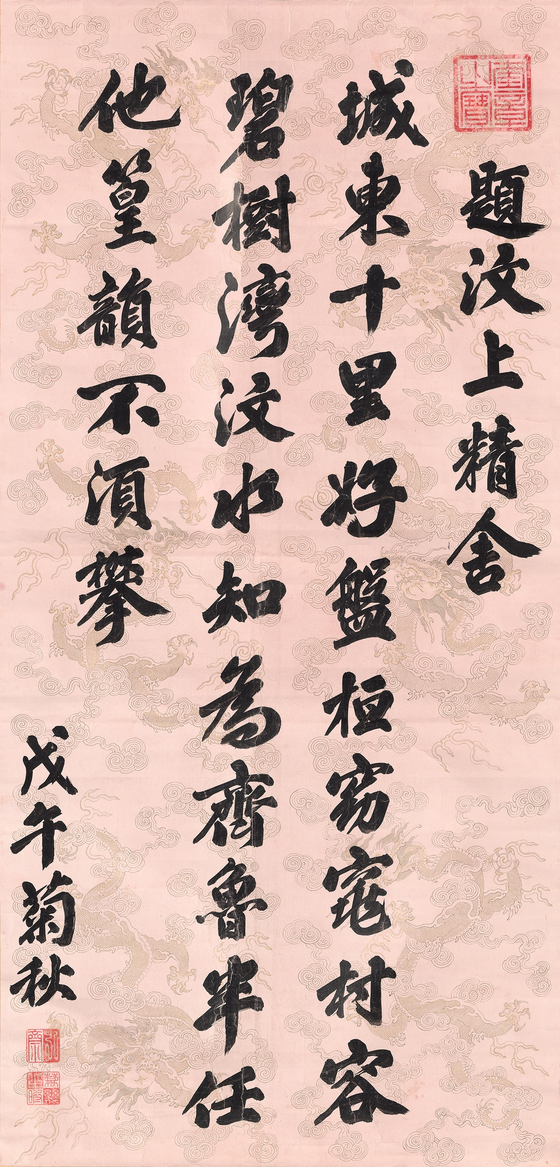 題汶上精舍
城東十里好盤桓窈窕村容
碧樹灣汶水知為齊魯半任
他篁韻不湏攀
戊午菊秋